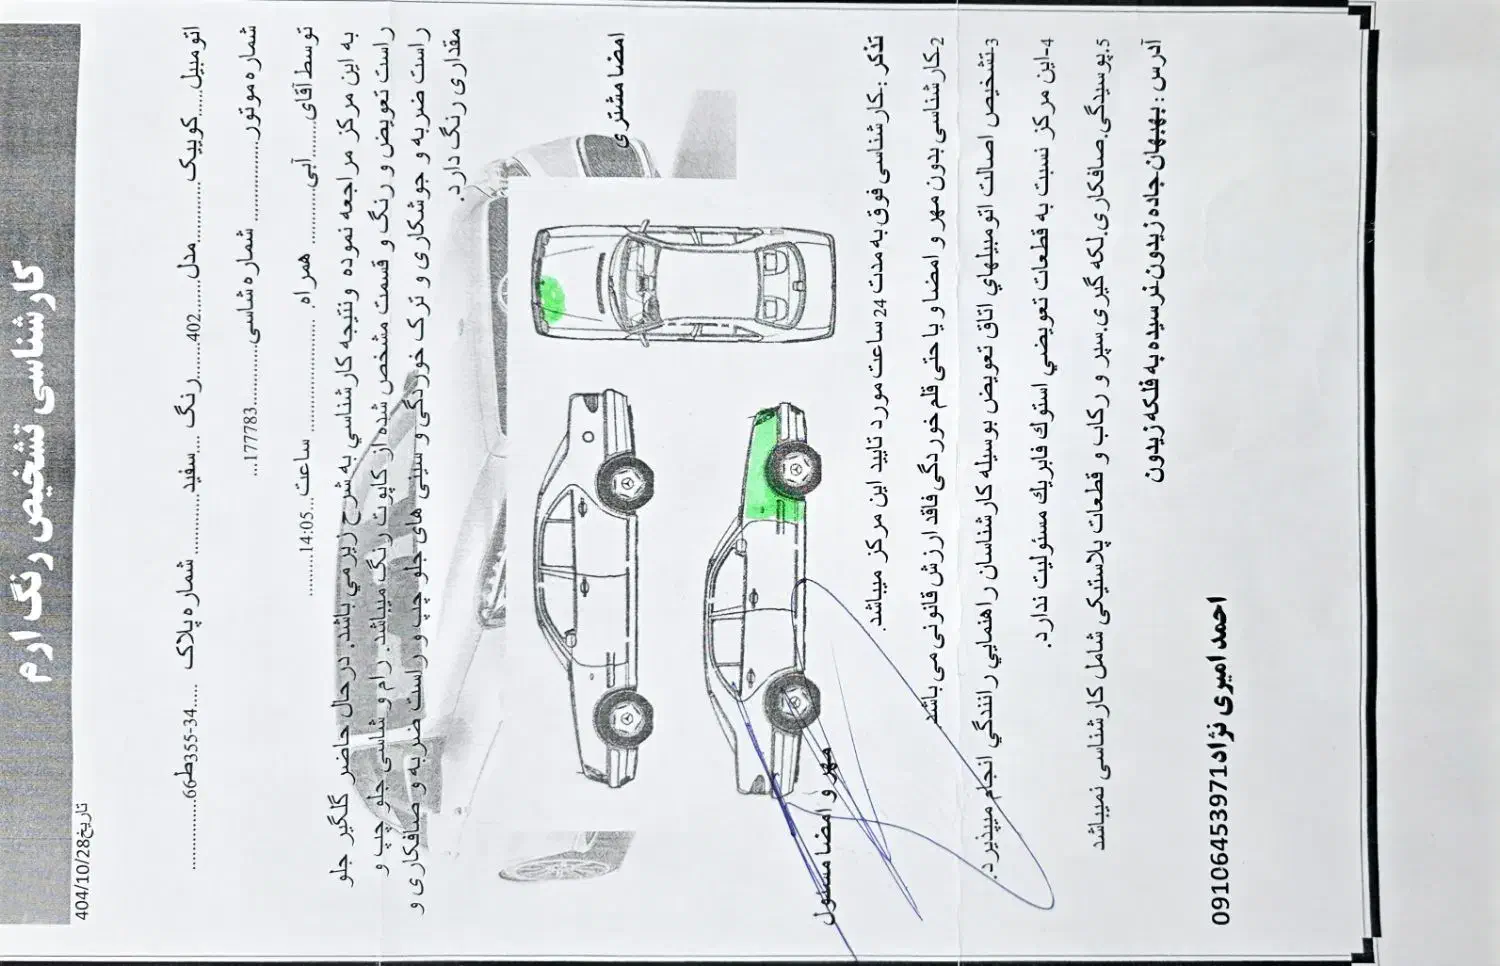 کارشناسی تشخیص رنگ ارم
تاریخ404/10/28
اتومبیل......کوییک............ مدل.......402......رنگ ....سفید ............ شماره پلاک ....34-355ط66..............
شماره موتور................ شماره شاسی................177783...
توسط آقای.......آبی............ همراه . ...................... ساعت...14:05..........
به این مرکز مراجعه نموده ونتیجه کارشناسي به شرح زیر مي باشد. در حال حاضر گلگیر جلو
راست تعویض و رنگ و قسمت مشخص شده از کاپوت رنگ میباشد. رام و شاسی جلو چپ و
راست ضربه و جوشکاری و ترک خوردگی و سینی های جلو چپ و راست ضربه و صافکاری و
مقداری رنگ دارد.
امضا مشتری
مهر و امضا مسئول
تذکر :کارشناسی فوق به مدت 24 ساعت مورد تایید این مرکز میباشد.
2-کارشناسی بدون مهر و امضا و یا حتی قلم خوردگی فاقد ارزش قانونی می باشد
3-تشخیص اصالت اتومبیلهاي اتاق تعویض بوسیله کارشناسان راهنمايي رانندگي انجام میپذیرد.
4-این مرکز نسبت به قطعات تعویضي استوك فابریك مسئولیت ندارد.
5.پوسیدگی.صافکاری.لکه گیری.سپر و رکاب و قطعات پلاستیکی شامل کارشناسی نمیباشد
آدرس : بهبهان جاده زیدون نرسیده به فلکه زیدون
احمد امیری نژاد09106453971